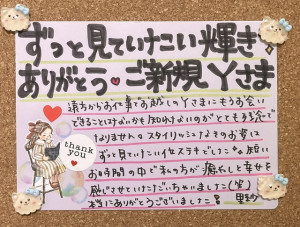 ずっと見ていたい輝き
ありがとう♥ご新規Yさま
遠方からお仕事でお越しのYさまにもうお会い
できることはないかも知れないのがとても残念で
なりません。スタイリッシュなそのお姿に
ずっと見ていたい位ステキでした 短い
お時間の中で私の方が癒やしと幸せを
感じさせていただいちゃいました(笑)
本当にありがとうございました
thank
you